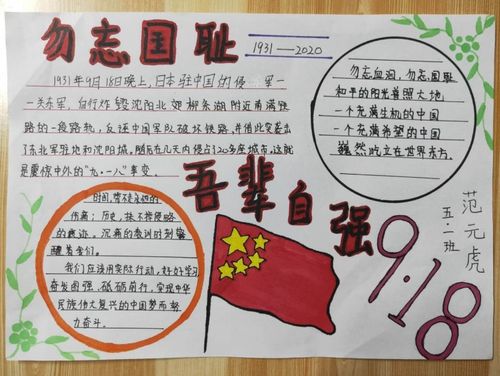 勿忘国耻
1931—2020
1931年9月18日晚上,日本驻中国的侵 军一
一关东军,自行炸毁沈阳北郊柳条湖附近南满铁
路的一段路轨,反诬中国军队破坏铁路,并借此突袭了
东北军驻地和沈阳城。随后在几天内侵占了20多座城市。这就
是震惊中外的“九·一八”事变。
勿忘血泪,勿忘国耻
和平的阳光普照大地
一个充满生机的中国
一个充满希望的中国
巍然屹立在世界东方。
吾辈自强
时间,带不走
伤痛;历史,抹不掉侵略
的痕迹。沉痛的教训时刻警
醒着我们。
我们应该用实际行动,好好学习
奋发图强,砥砺前行,实现中华
民族伟大复兴的中国梦而努
力奋斗。
范元虎
五·二班
9·18